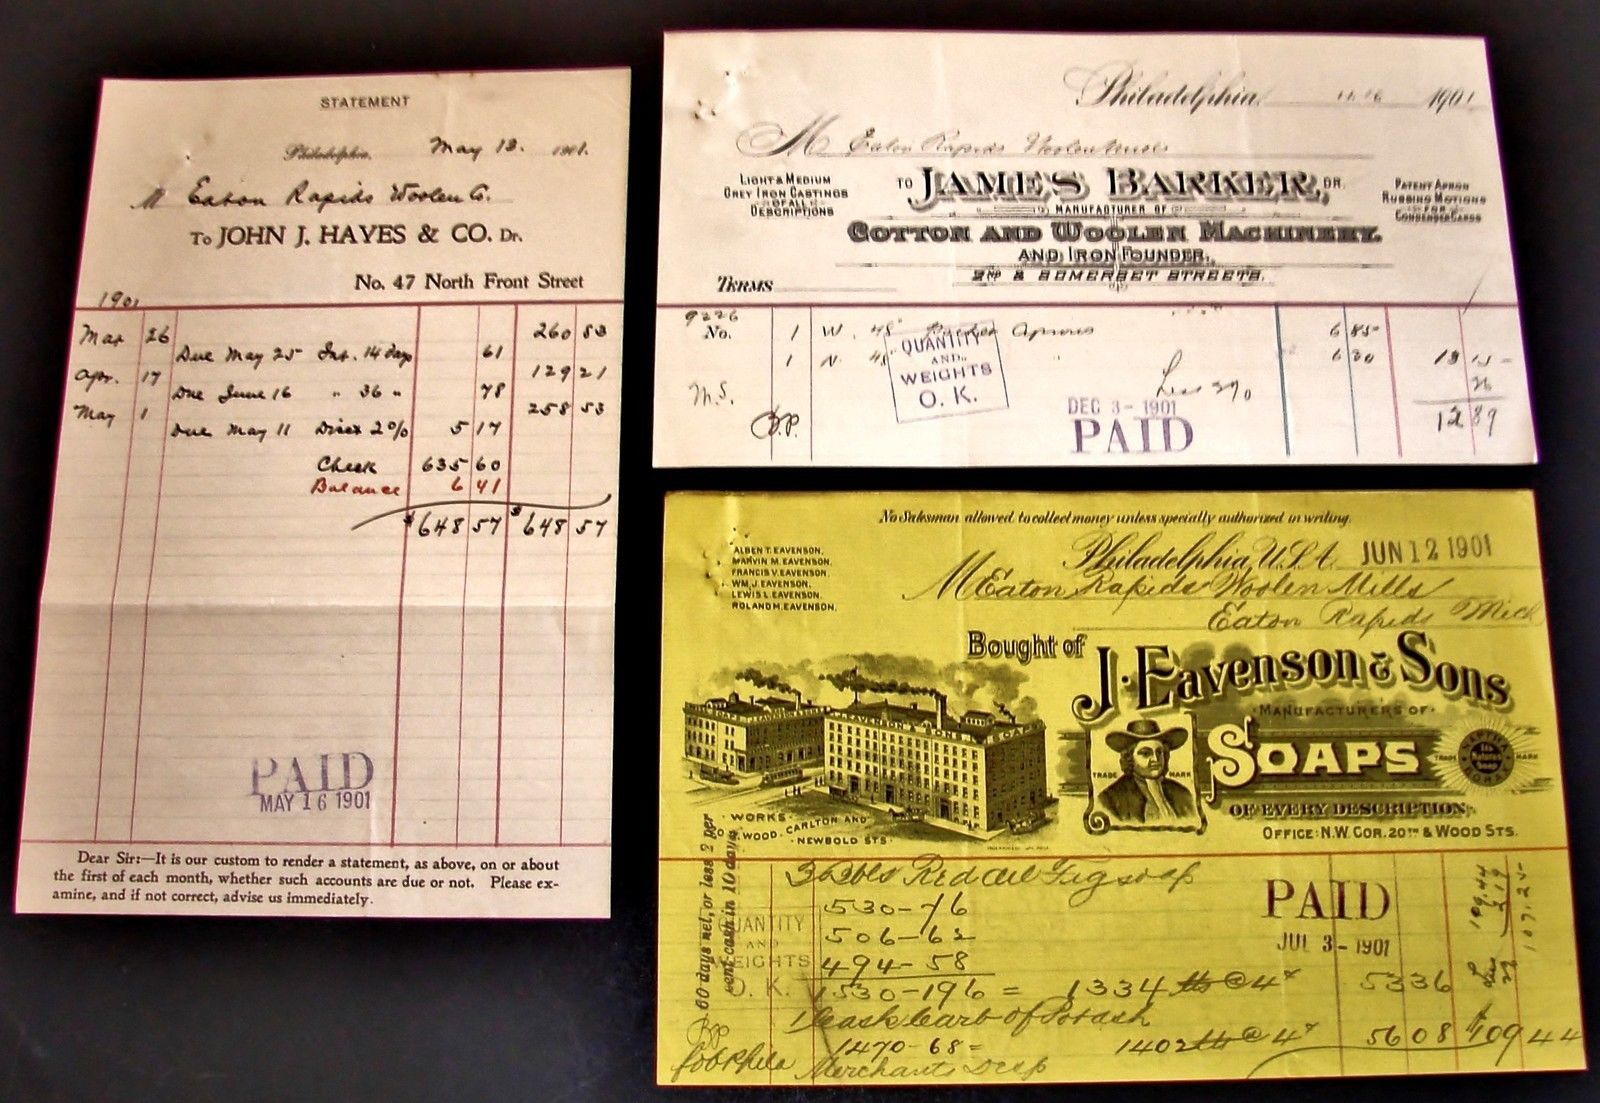 STATEMENT
Philadelphia, May 13. 1901.
M Eaton Rapids Woolen Co.
To JOHN J. HAYES & CO. Dr.
No. 47 North Front Street
1901
Mar 26 260 53
Due May 25 Int. 14 days 61
Apr. 17 129 21
Due June 16 " 36 " 78
May 1 258 53
Due May 11 Disct 2% 5 17
Check 635 60
Balance 6 41
$648 57 $648 57
PAID
MAY 16 1901
Dear Sir:—It is our custom to render a statement, as above, on or about
the first of each month, whether such accounts are due or not. Please ex-
amine, and if not correct, advise us immediately.
Philadelphia, 1901
M Eaton Rapids Woolen Mills
LIGHT & MEDIUM
GREY IRON CASTINGS
OF ALL
DESCRIPTIONS
TO JAMES BARKER, DR.
MANUFACTURER OF
COTTON AND WOOLEN MACHINERY,
AND IRON FOUNDER,
2ND & SOMERSET STREETS.
PATENT APRON
RUBBING MOTIONS
FOR
CONDENSER CARDS
TERMS
9226
No. 1 W. 48" Aprons 6 85
1 N 48" " 6 30 13 15
Less 2% 26
M.S.
12 89
B.P.
QUANTITY
AND
WEIGHTS
O. K.
DEC 3 - 1901
PAID
No Salesman allowed to collect money unless specially authorized in writing.
ALBEN T. EAVENSON,
MARVIN M. EAVENSON,
FRANCIS V. EAVENSON,
WM. J. EAVENSON,
LEWIS L. EAVENSON,
ROLAND M. EAVENSON,
Philadelphia, U.S.A. JUN 12 1901
M Eaton Rapids Woolen Mills
Eaton Rapids Mich
Bought of J. EAVENSON & SONS
MANUFACTURERS OF
SOAPS
TRADE MARK
TRADE MARK
OF EVERY DESCRIPTION,
OFFICE: N.W. COR. 20TH & WOOD STS.
WORKS
WOOD, CARLTON AND
NEWBOLD STS.
60 days net, or less 2 per
cent cash in 10 days
3 bbls Red Oil Fig soap
530-76
506-62
494-58
1530-196 = 1334 lbs @ 4 5336
1 Cask Carb of Potash
1470-68= 1402 lbs @ 4 5608 $109 44
Merchants Desp
BP
fob Phila
QUANTITY
AND
WEIGHTS
O. K.
PAID
JUL 3 - 1901
109.44
Less 2% 2.19
107.25